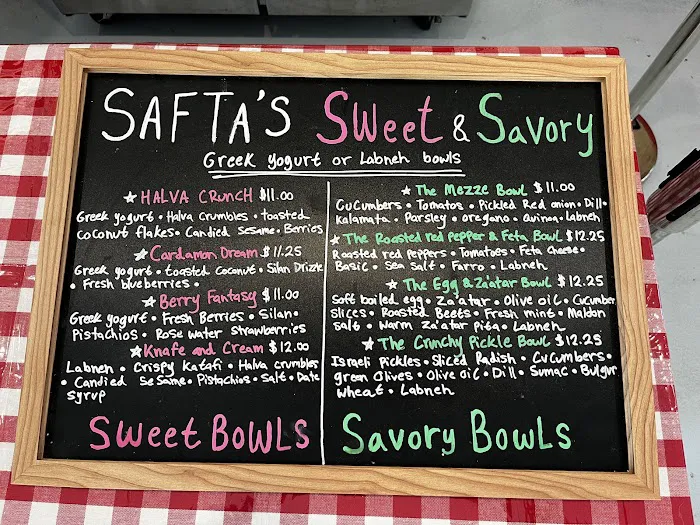 SAFTA'S Sweet & Savory
Greek yogurt or Labneh bowls
HALVA CRUNCH $11.00
Greek yogurt • Halva crumbles • toasted
coconut flakes • Candied Sesame • Berries
Cardamon Dream $11.25
Greek yogurt • toasted coconut • Silan Drizzle
• Fresh blueberries •
Berry Fantasy $11.00
Greek yogurt • Fresh Berries • Silan •
Pistachios • Rose water strawberries
Knafe and Cream $12.00
Labneh • Crispy Katafi • Halva crumbles
• Candied Sesame • Pistachios • Salt • Date
syrup
Sweet BOWLS
The Mezze Bowl $11.00
Cucumbers • Tomatos • Pickled Red onion • Dill •
Kalamata • Parsley • oregano • Quinoa • Labneh
The Roasted red pepper & Feta Bowl $12.25
Roasted red peppers • Tomatoes • Feta cheese •
Basic • Sea Salt • Farro • Labneh
The Egg & Za'atar Bowl $12.25
Soft boiled egg • Za'atar • Olive oil • Cucumber
slices • Roasted Beets • Fresh mint • Maldon
salt • Warm Za'atar pita • Labneh
The Crunchy Pickle Bowl $12.25
Israeli Pickles • Sliced Radish • Cucumbers •
green Olives • Olive oil • Dill • Sumac • Bulgur
wheat • Labneh
Savory BOWLS